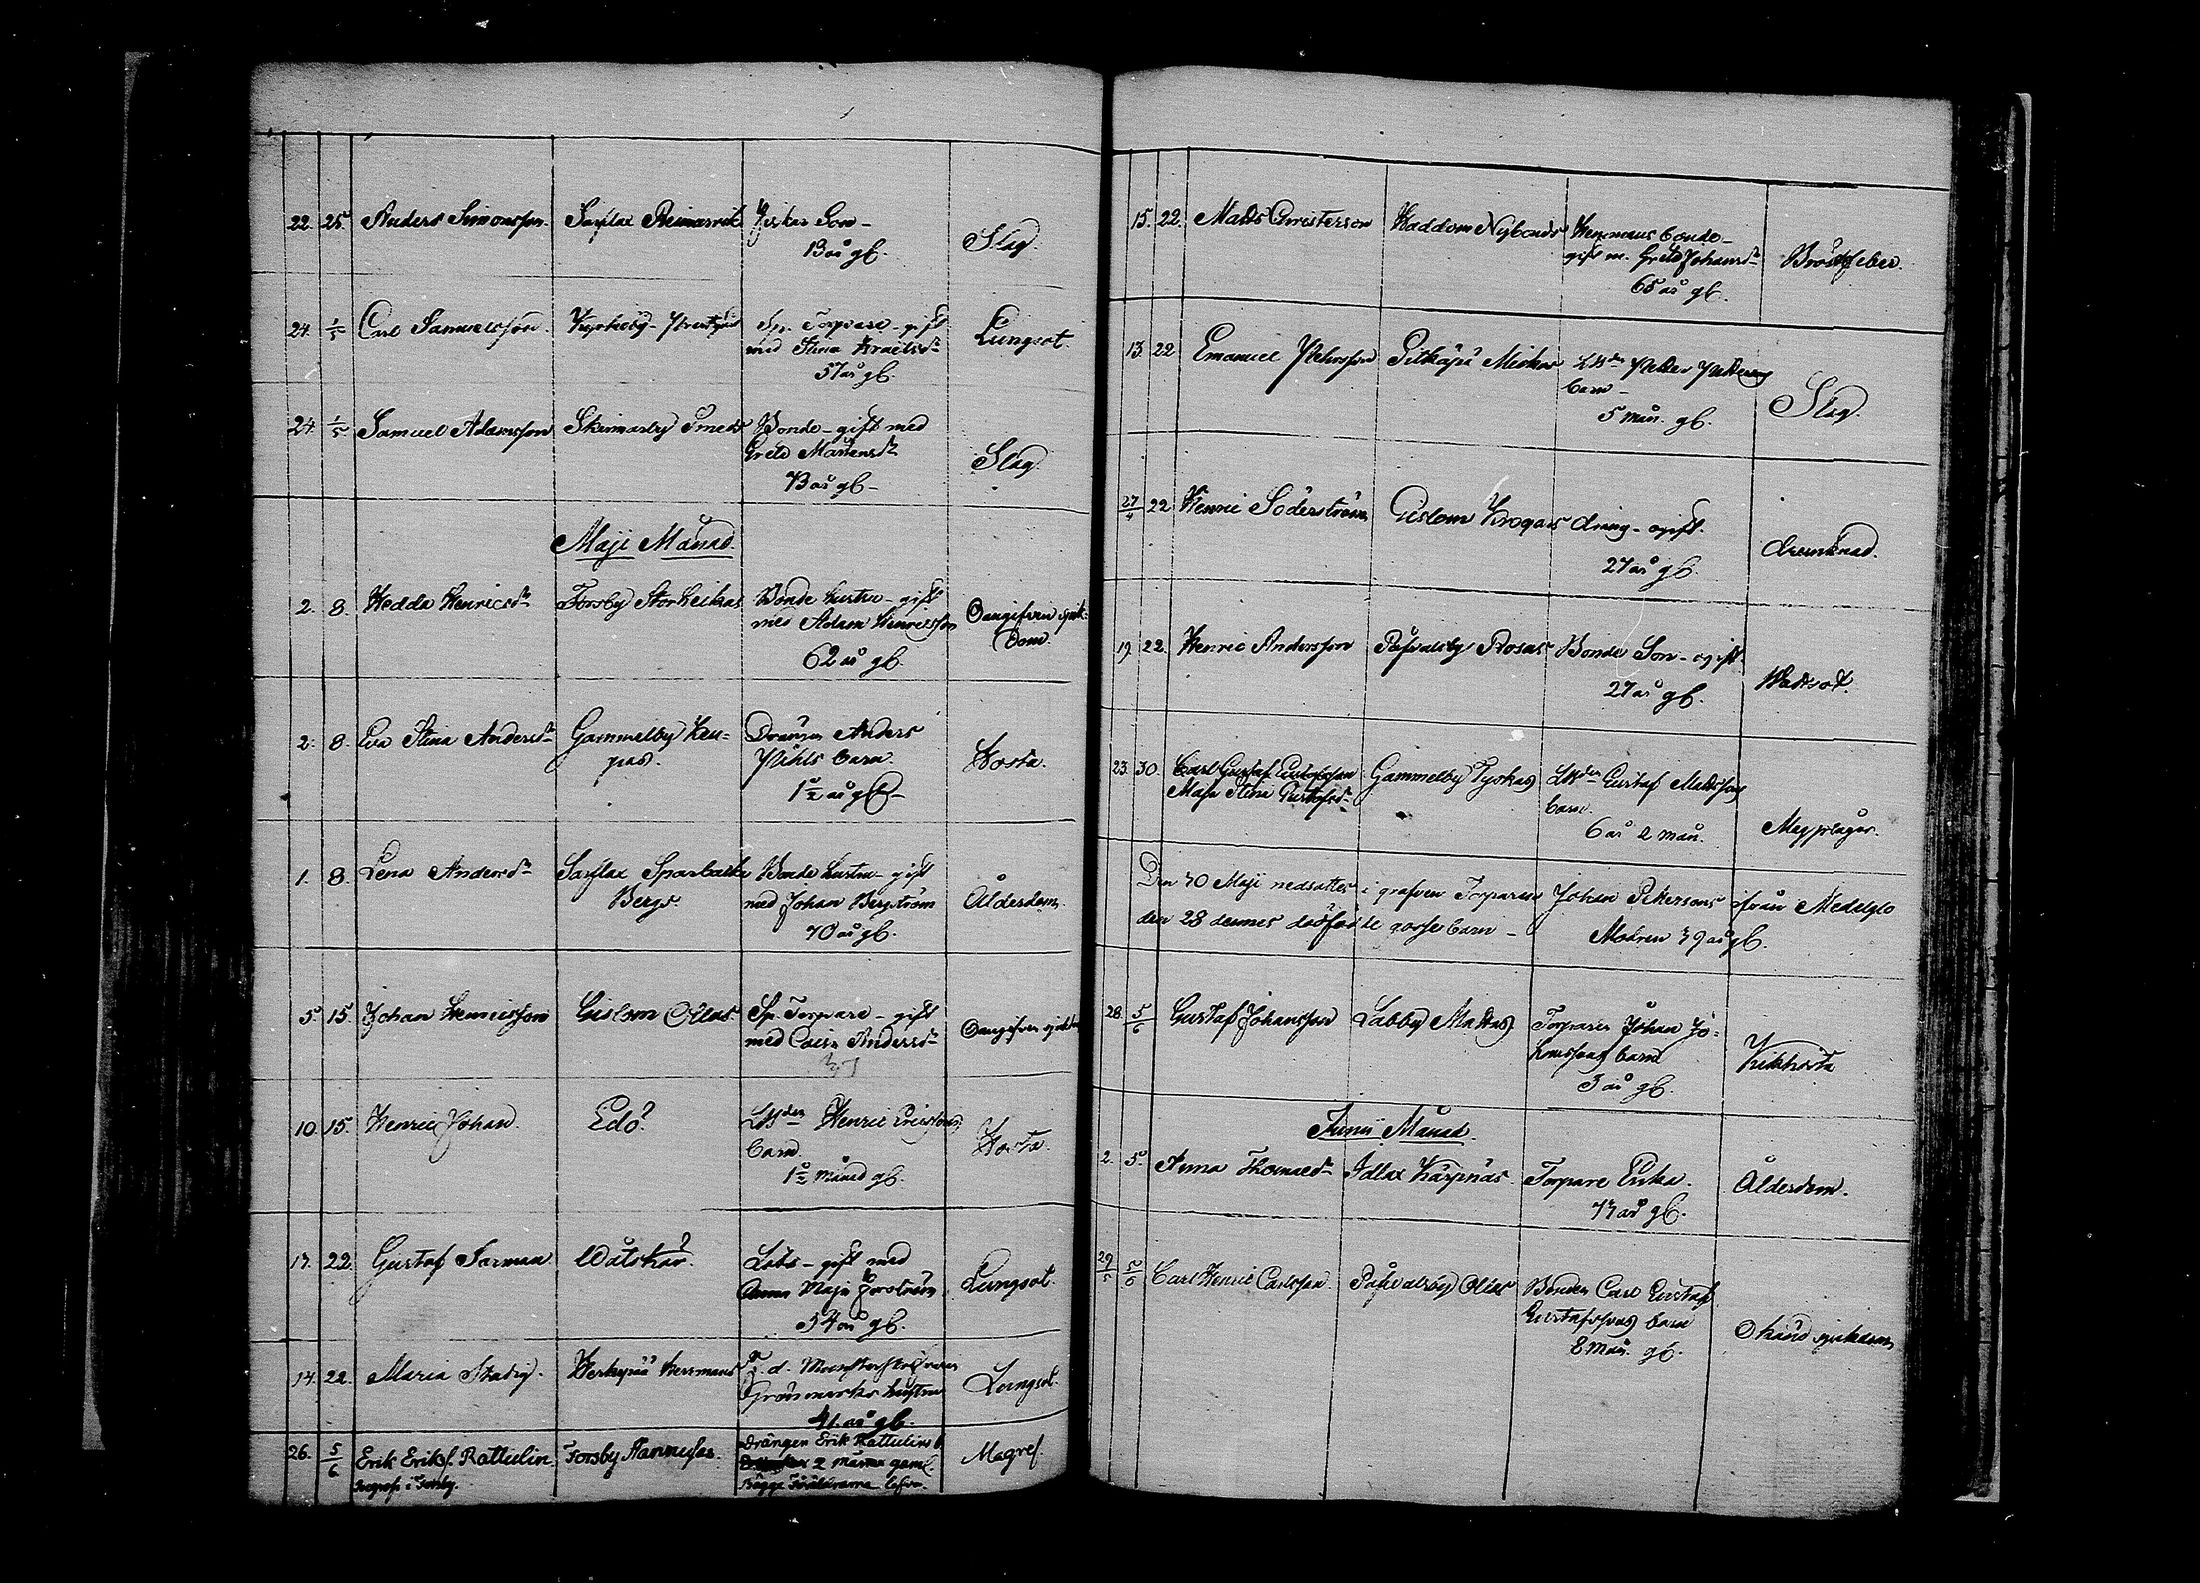 22. 25. Anders Simonsson. Sarflax Reimarsvik Fiskar Son-
13 år gl. Slag.
24. 1/5 Carl Samuelsson. Kyrkoby- Sp. Torpare- gift
med Stina
57 år gl. Lungsot.
24. 1/5 Samuel Adamsson Skinnarby Smeds Bonde- gift med
Greta Mårtensdr
73 år gl- Slag.
Maji Månad.
2. 8. Hedda Henricsdr Forsby Storheikas Bonde hustru- gift
med Adam Henricsson
62 år gl. Oangifven sjuk-
dom.
2. 8. Eva Stina Andersdr Gammelby Keu-
pas. Drängen Anders
Pihls barn.
1 1/2 år gl- Hosta.
1. 8. Lena Andersdr Sarflax Sparbacka
Bergs. Bonde hustru- gift
med Johan Bergström
70 år gl. Ålderdom.
5. 15. Johan Henricsson Gislom Ollas Sp. Torpare- gift
med Caisa Andersdr
37 Oangifven
10. 15. Henric Johan. Edö? Henric
barn.
1 1/2 månad gl. Hosta.
17. 22. Gustaf Sarman Våtskär? Lots- gift med
Anna Maja Forström
54 år gl. Lungsot.
14. 22. Maria Stadig. Herrmans
Grönmarks hustru
41. år gl. Lungsot.
26. 5/6 Erik Eriks. Rattulin Forsby Hannusas. Drängen Erik Rattulins
i Forsby. 2 månar gam. Magref.
Bägge Föräldrarna lefva.
15. 22. Matts Christersson Haddom Nybonds Hemmans bonde-
gift m. Greta Johansdr
65 år gl. Bröstfeber.
13. 22 Emanuel Pehrsson Pitkäpä Mickos Petter
barn-
5 mån. gl. Slag.
27/4 22 Henric Söderström Gislom Krogars dräng- ogift.
27 år gl. drunknad.
19. 22. Henric Andersson Påfvalsby Rosas Bonde Son- ogift.
27 år gl. Wattsot.
23. 30. Carl Gustaf
Maja Stina Gustafsdr Gammelby Tyskas Gustaf Mattssons
barn.
6 år 2 mån. Magplågor.
Den 30 Maji nedsattes i grafven Torparen Johan Petersons ifrån Medelglo
den 28 dennes dödfödde gosse barn- Modren 39 år gl.
28. 5/6 Gustaf Johansson Labby Mattas Torparen Johan Jo-
hanssons barn
3 år gl. Kikhosta
Junii Månad.
2. 5. Anna Thomasdr Idlax Kärpnäs Torpare Enka.
77 år gl. Ålderdom.
29/5 5/6 Carl Henric Carlsson. Påfvalsby Ollas Bonden Carl Gustaf
Gustafssons barn
8 mån. gl. Okänd sjukdom